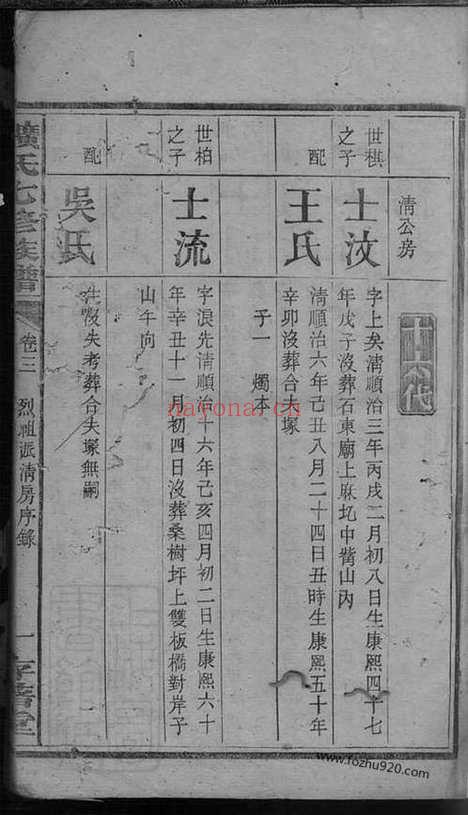 清公房
世棋
之子
士汶
字上矣清順治三年丙戌二月初八日生康熙四十七
年戊子沒葬石東廟上麻圠中嘴山內
配
王氏
清順治六年己丑八月二十四日丑時生康熙五十年
辛卯沒葬合夫塚
子一 燭本
世柏
之子
士流
字浪先清順治十六年己亥四月初二日生康熙六十
年辛丑十一月初四日沒葬桑樹坪上雙板橋對岸子
山午向
配
吳氏
生沒失考葬合夫塚無嗣
氏七修族譜
卷三
烈祖派清房序錄
一
nayona.cn
www.fozhu920.com